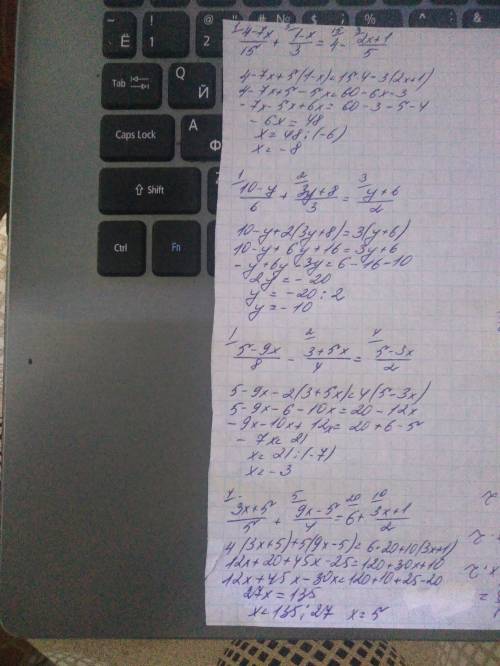 (4-7x)/15 + (1-x)/3 = 4 - (2x+1)/5
4-7x+5(1-x)=15·4-3(2x+1)
4-7x+5-5x=60-6x-3
-7x-5x+6x=60-3-5-4
-6x=48
x=48:(-6)
x=-8
(10-y)/6 + (3y+8)/3 = (y+6)/2
10-y+2(3y+8)=3(y+6)
10-y+6y+16=3y+6
-y+6y-3y=6-16-10
2y=-20
y=-20:2
y=-10
(5-9x)/8 - (3+5x)/4 = (5-3x)/2
5-9x-2(3+5x)=4(5-3x)
5-9x-6-10x=20-12x
-9x-10x+12x=20+6-5
-7x=21
x=21:(-7)
x=-3
(3x+5)/5 + (9x-5)/4 = 6 + (3x+1)/2
4(3x+5)+5(9x-5)=6·20+10(3x+1)
12x+20+45x-25=120+30x+10
12x+45x-30x=120+10+25-20
27x=135
x=135:27 x=5
Ё
2
Tab
Q
Й
Caps Lock
A
Ф
Shift
Ctrl
Fn